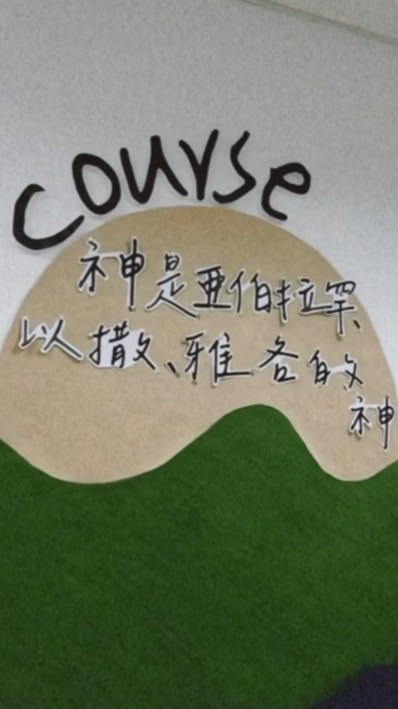 course
神是亞伯拉罕、
以撒、雅各的
神